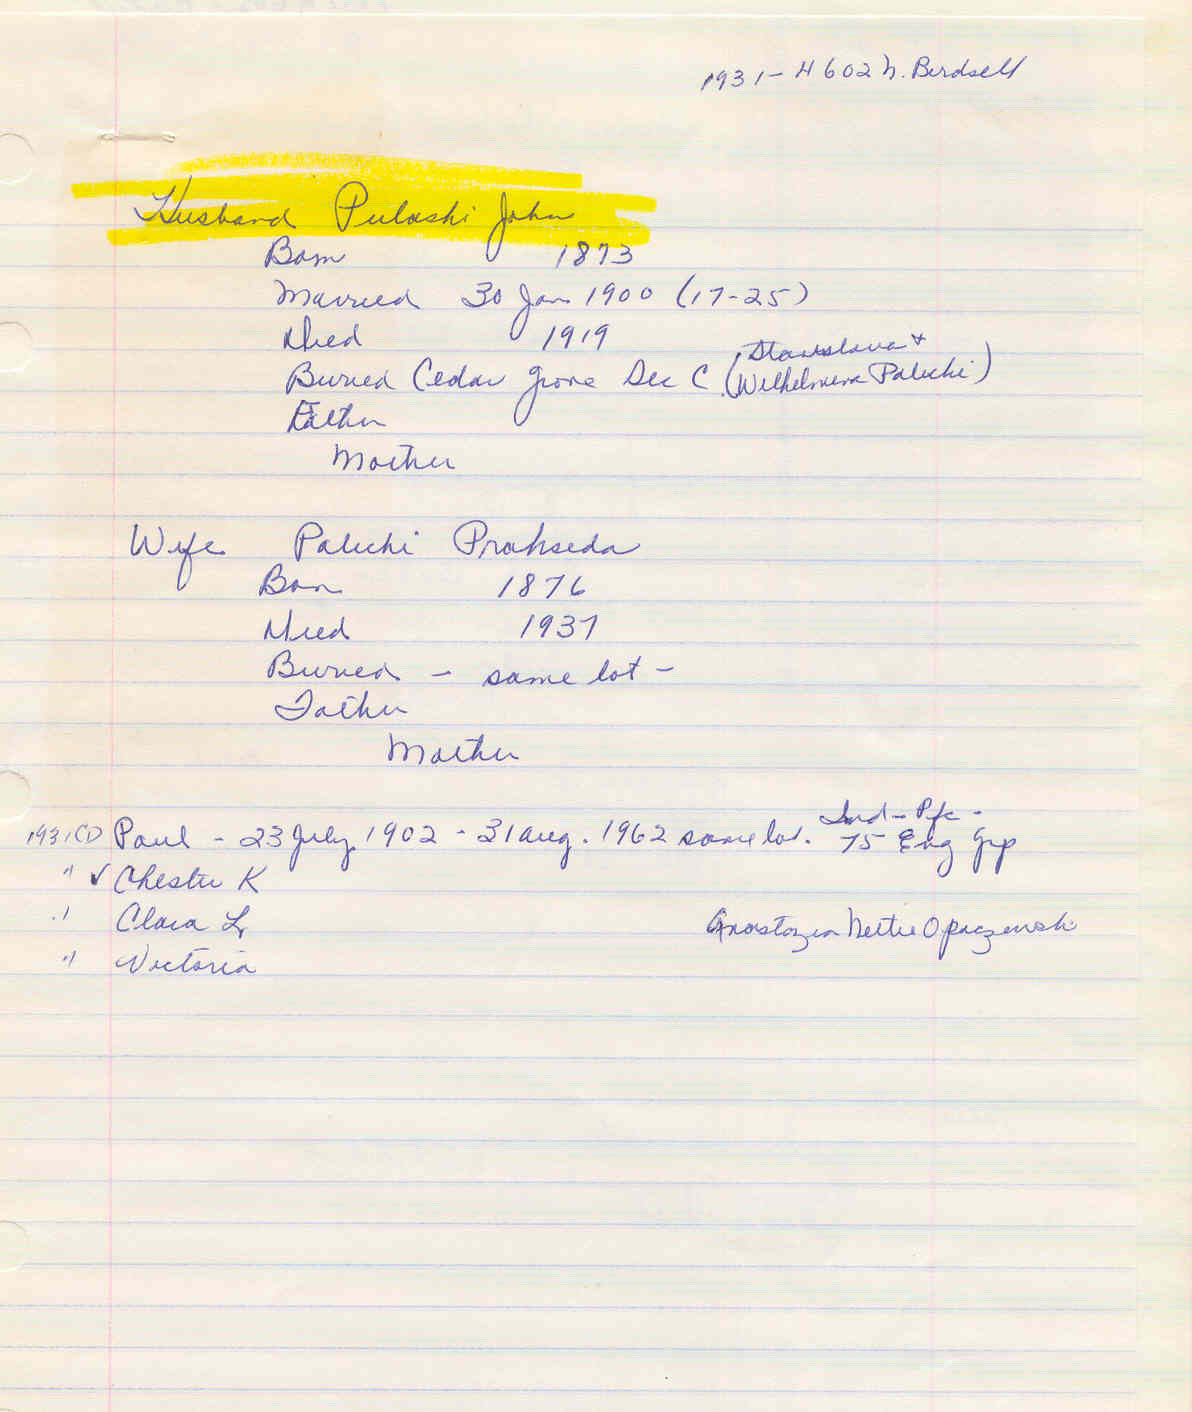 1931 - H 602 N. Birdsell
Husband Pulaski John
Born 1873
Married 30 Jan 1900 (17-25)
Died 1919
Stanislava +
Buried Cedar Grove Sec C (Wilhelmina Paluchi)
Father
Mother
Wife Paluchi Prakseda
Born 1876
Died 1937
Buried - same lot -
Father
Mother
Ind - Pfc -
1931 CD Paul - 23 July 1902 - 31 Aug. 1962 same lot. 75 Eng Grp
" ✓ Chester K
" Clara L
Anastazia Nettie Opaczewski
" Victoria